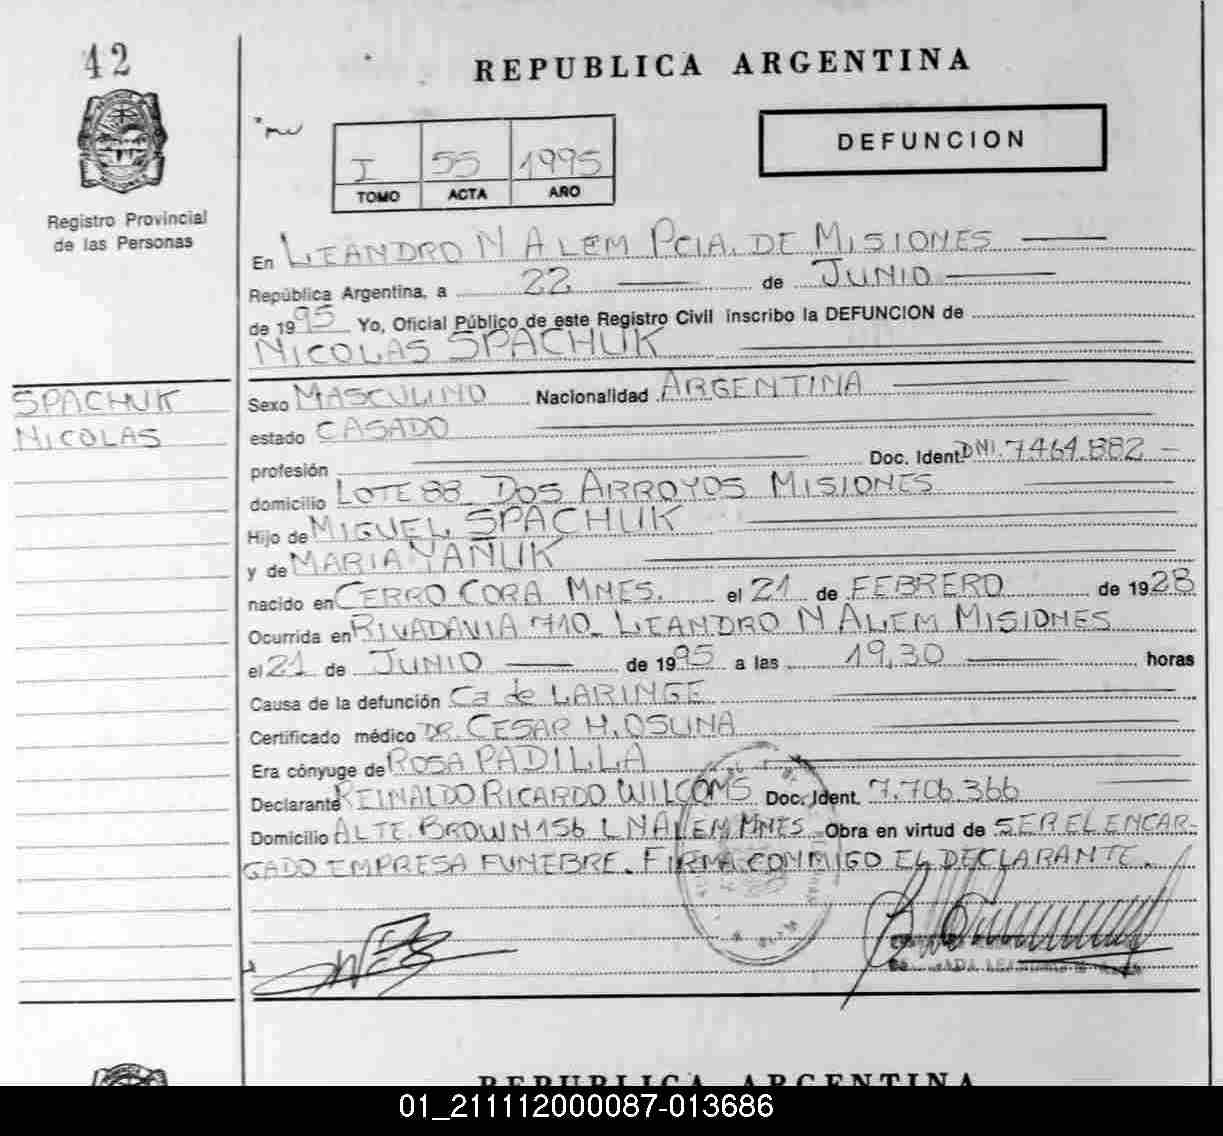 42
REPUBLICA ARGENTINA
I 55 1995
TOMO ACTA AÑO
DEFUNCION
Registro Provincial
de las Personas
En LEANDRO N ALEM PCIA. DE MISIONES
República Argentina, a 22 de JUNIO
de 1995 Yo, Oficial Público de este Registro Civil inscribo la DEFUNCION de
NICOLAS SPACHUK
SPACHUK
NICOLAS
Sexo MASCULINO Nacionalidad ARGENTINA
estado CASADO
profesión Doc. Ident. DNI. 7.464.882 -
domicilio LOTE 88 DOS ARROYOS MISIONES
Hijo de MIGUEL SPACHUK
y de MARIA YAÑUK
nacido en CERRO CORA MNES. el 21 de FEBRERO de 1928
Ocurrida en RIVADAVIA 710_ LEANDRO N ALEM MISIONES
el 21 de JUNIO de 1995 a las 19,30 horas
Causa de la defunción Ca de LARINGE
Certificado médico DR. CESAR H. OSUNA
Era cónyuge de ROSA PADILLA
Declarante REINALDO RICARDO WILCOMS Doc. Ident. 7.706.366
Domicilio ALTE. BROWN 156 L N ALEM MNES Obra en virtud de SER EL ENCAR-
GADO EMPRESA FUNEBRE. FIRMA CONMIGO EL DECLARANTE.
REPUBLICA ARGENTINA
01_211112000087-013686